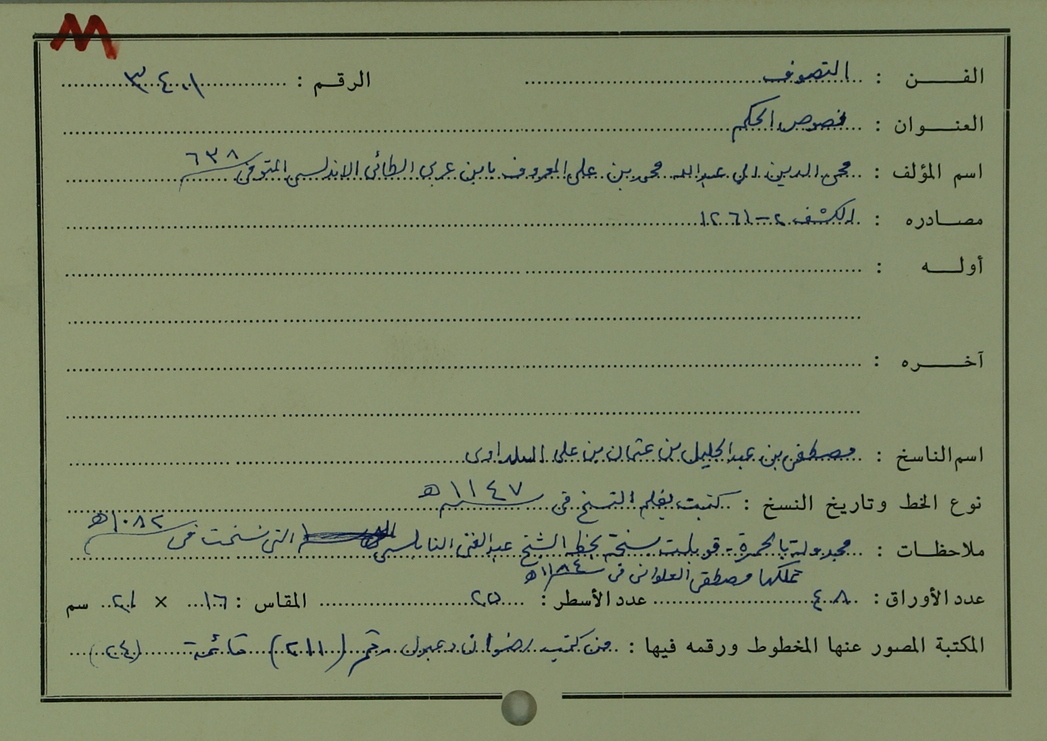 M
الفن : التصوف الرقم : ٣٤٠١
العنوان : فصوص الحكم
اسم المؤلف : محي الدين ابي عبدالله محمد بن علي المعروف بابن عربي الطائي الاندلسي المتوفى ٦٣٨
مصادره : الكشف ٢ - ١٢٦١
أوله :
آخره :
اسم الناسخ : مصطفى بن عبد الجليل بن عثمان بن علي
نوع الخط وتاريخ النسخ : كتبت بقلم النسخ في ١١٤٧ هـ
ملاحظات : مجدولة بالحمرة - قوبلت بنسخة بخط الشيخ عبد الغني النابلسي التي نسخت في ١٠٨٢ هـ
تملكها مصطفى العلواني في ١١٨٤ هـ
عدد الأوراق : ٤٠٨ عدد الأسطر : ٢٥ المقاس : ١٦ × ٢١ سم
المكتبة المصور عنها المخطوط ورقمه فيها : من كتب رضوان دعبول رقم (٢١١) قائمة (٢٤٠)